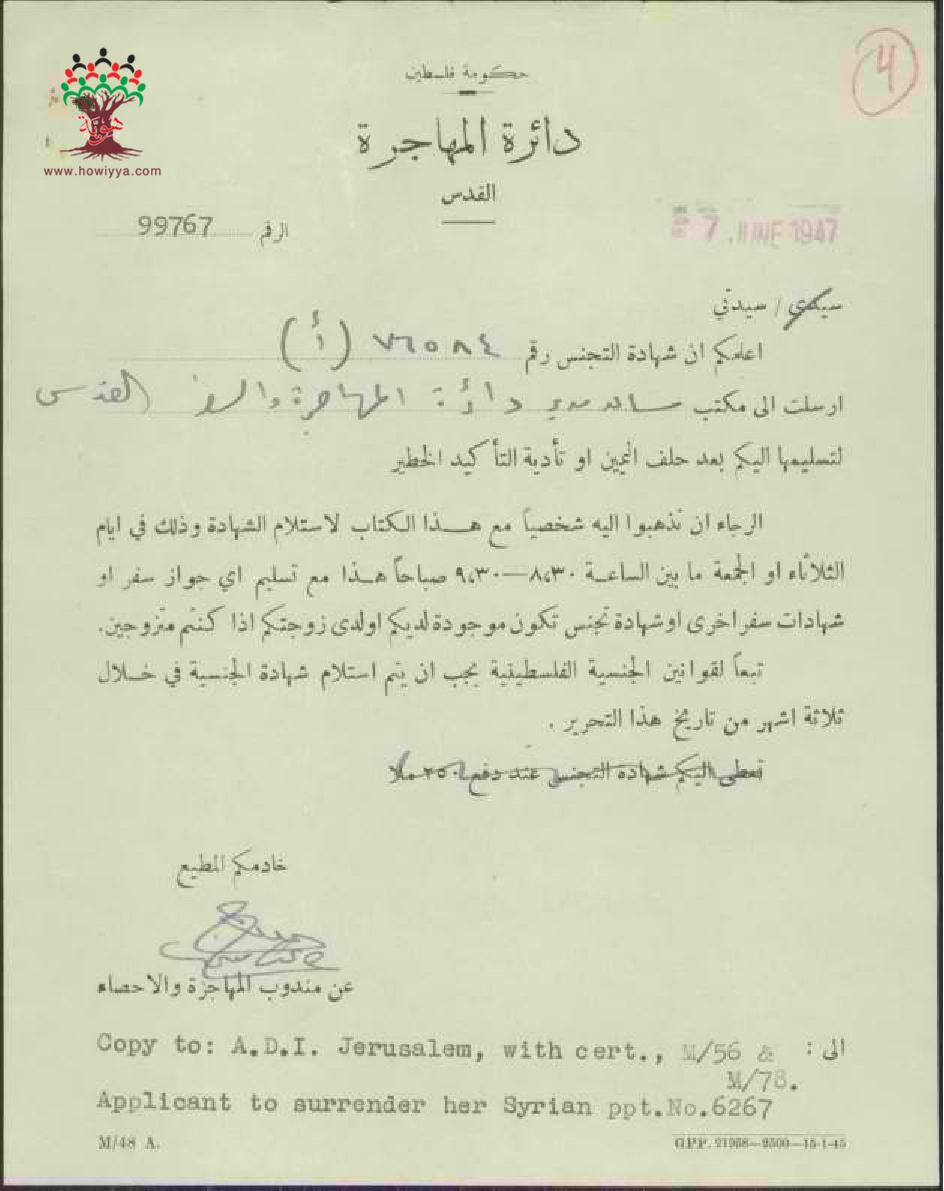 4
حكومة فلسطين
دائرة المهاجرة
القدس
هوية
www.howiyya.com
الرقم 99767
7 JUNE 1947
سيدي / سيدتي
اعلمكم ان شهادة التجنس رقم ٧٦٥٨٤ (أ)
ارسلت الى مكتب مدير دائرة المهاجرة القدس
لتسليمها اليكم بعد حلف اليمين او تأدية التأكيد الخطير
الرجاء ان تذهبوا اليه شخصياً مع هـذا الكتاب لاستلام الشهادة وذلك في ايام
الثلاثاء او الجمعة ما بين الساعـة ٨،٣٠—٩،٣٠ صباحاً هـذا مع تسليم اي جواز سفر او
شهادات سفر اخرى او شهادة تجنس تكون موجودة لديكم او لدى زوجتكم اذا كنتم متزوجين.
تبعاً لقوانين الجنسية الفلسطينية يجب ان يتم استلام شهادة الجنسية في خـلال
ثلاثة اشهر من تاريخ هذا التحرير .
تعطى اليكم شهادة التجنس عند دفع ٢٥٠ ملا
خادمكم المطيع
عن مندوب المهاجرة والاحصاء
الى :
Copy to: A.D.I. Jerusalem, with cert., M/56 &
M/78.
Applicant to surrender her Syrian ppt.No.6267
M/48 A.
GPP. 21958—2500—15-1-45